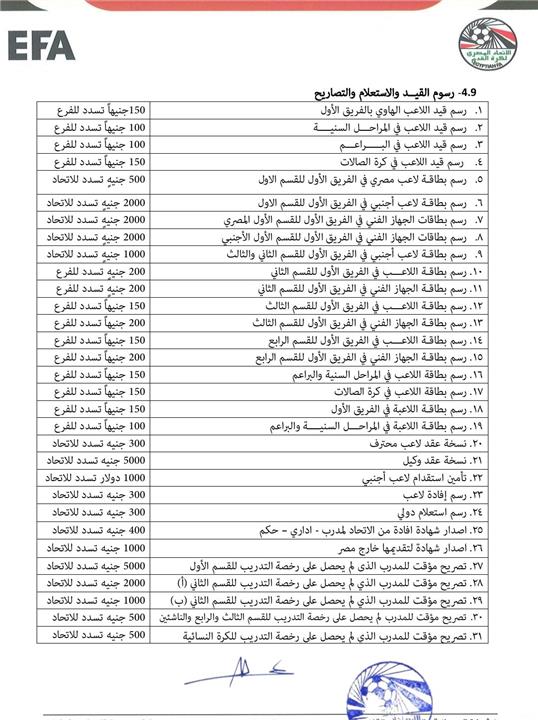 EFA
الاتحاد المصرى
لكرة القدم
EGYPTIAN FA
4.9- رسوم القيــد والاستعلام والتصاريح
١. رسم قيد اللاعب الهاوي بالفريق الأول 150جنيهاً تسدد للفرع
٢. رسم قيد اللاعب في المراحــل السنيــــة 100 جنيهاً تسدد للفرع
٣. رسم قيد اللاعب في البـــراعــم 100 جنيهاً تسدد للفرع
٤. رسم قيد اللاعب في كرة الصالات 150 جنيهاً تسدد للفرع
٥. رسم بطاقة لاعب مصري في الفريق الأول للقسم الاول 500 جنيهٍ تسدد للاتحاد
٦. رسم بطاقـة لاعب أجنبي في الفريق الأول للقسم الاول 2000 جنيهٍ تسدد للاتحاد
٧. رسم بطاقات الجهاز الفني في الفريق الأول للقسم الأول المصري 2000 جنيهٍ تسدد للاتحاد
٨. رسم بطاقات الجهاز الفني في الفريق الأول للقسم الأول الأجنبي 2000 جنيهٍ تسدد للاتحاد
٩. رسم بطاقة لاعب أجنبي في الفريق الأول للقسم الثاني والثالث 1000 جنيهٍ تسدد للاتحاد
١٠. رسم بطاقـة اللاعــب في الفريق الأول للقسم الثاني 200 جنيهٍ تسدد للفرع
١١. رسم بطاقـة الجهاز الفني في الفريق الأول للقسم الثاني 200 جنيهٍ تسدد للفرع
١٢. رسم بطاقـة اللاعــب في الفريق الأول للقسم الثالث 150 جنيهاً تسدد للفرع
١٣. رسم بطاقـة الجهاز الفني في الفريق الأول للقسم الثالث 200 جنيهاً تسدد للفرع
١٤. رسم بطاقـة اللاعــب في الفريق الأول للقسم الرابع 150 جنيهاً تسدد للفرع
١٥. رسم بطاقـة الجهاز الفني في الفريق الأول للقسم الرابع 200 جنيهاً تسدد للفرع
١٦. رسم بطاقة اللاعب في المراحل السنية والبراعم 150 جنيهاً تسدد للفرع
١٧. رسم بطاقة اللاعب في كرة الصالات 150 جنيهاً تسدد للفرع
١٨. رسم بطاقـة اللاعبة في الفريق الأول 150 جنيهاً تسدد للفرع
١٩. رسم بطاقـة اللاعبة في المراحــل السنيــة والبراعم 100 جنيهاً تسدد للفرع
٢٠. نسخة عقد لاعب محترف 300 جنيه تسدد للاتحاد
٢١. نسخة عقد وكيل 5000 جنيه تسدد للاتحاد
٢٢. تأمين استقدام لاعب أجنبي 1000 دولار تسدد للاتحاد
٢٣. رسم إفادة لاعب 300 جنيه تسدد للاتحاد
٢٤. رسم استعلام دولي 300 جنيه تسدد للاتحاد
٢٥. اصدار شهادة افادة من الاتحاد لمدرب - اداري – حكم 400 جنيه تسدد للاتحاد
٢٦. اصدار شهادة لتقديمها خارج مصر 1000 جنيه تسدد للاتحاد
٢٧. تصريح مؤقت للمدرب الذي لم يحصل على رخصة التدريب للقسم الأول 5000 جنيه تسدد للاتحاد
٢٨. تصريح مؤقت للمدرب الذي لم يحصل على رخصة التدريب للقسم الثاني (أ) 2000 جنيه تسدد للاتحاد
٢٩. تصريح مؤقت للمدرب الذي لم يحصل على رخصة التدريب للقسم الثاني (ب) 1000 جنيه تسدد للاتحاد
٣٠. تصريح مؤقت للمدرب لم يحصل على رخصة التدريب للقسم الثالث والرابع والناشئين 500 جنيه تسدد للاتحاد
٣١. تصريح مؤقت للمدرب الذي لم يحصل على رخصة التدريب للكرة النسائية 500 جنيه تسدد للاتحاد